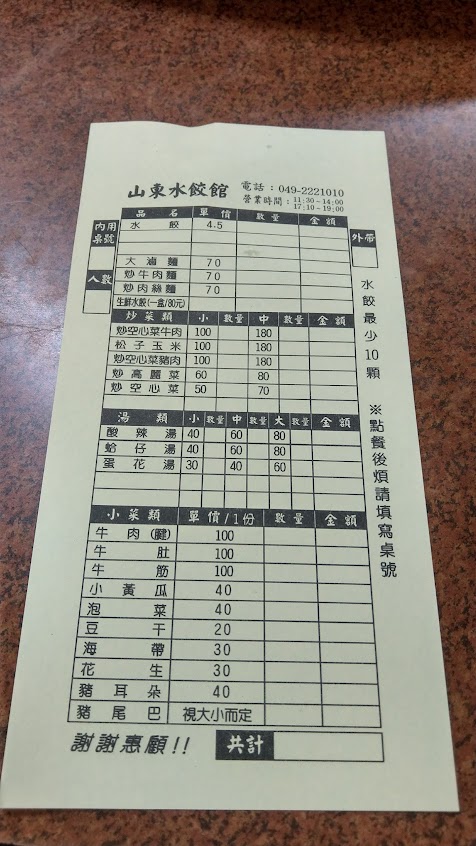 山東水餃館
電話：049-2221010
營業時間：11:30－14:00
17:10－19:00
內用桌號
人數
外帶
品名 單價 數量 金額
水餃 4.5
大滷麵 70
炒牛肉麵 70
炒肉絲麵 70
生鮮水餃(一盒/80元)
炒菜類 小 數量 中 數量 金額
炒空心菜牛肉 100 180
松子玉米 100 180
炒空心菜豬肉 100 180
炒高麗菜 60 80
炒空心菜 50 70
湯類 小 數量 中 數量 大 數量 金額
酸辣湯 40 60 80
蛤仔湯 40 60 80
蛋花湯 30 40 60
小菜類 單價/1份 數量 金額
牛肉(腱) 100
牛肚 100
牛筋 100
小黃瓜 40
泡菜 40
豆干 20
海帶 30
花生 30
豬耳朵 40
豬尾巴 視大小而定
謝謝惠顧!! 共計
水餃最少10顆 ※點餐後煩請填寫桌號